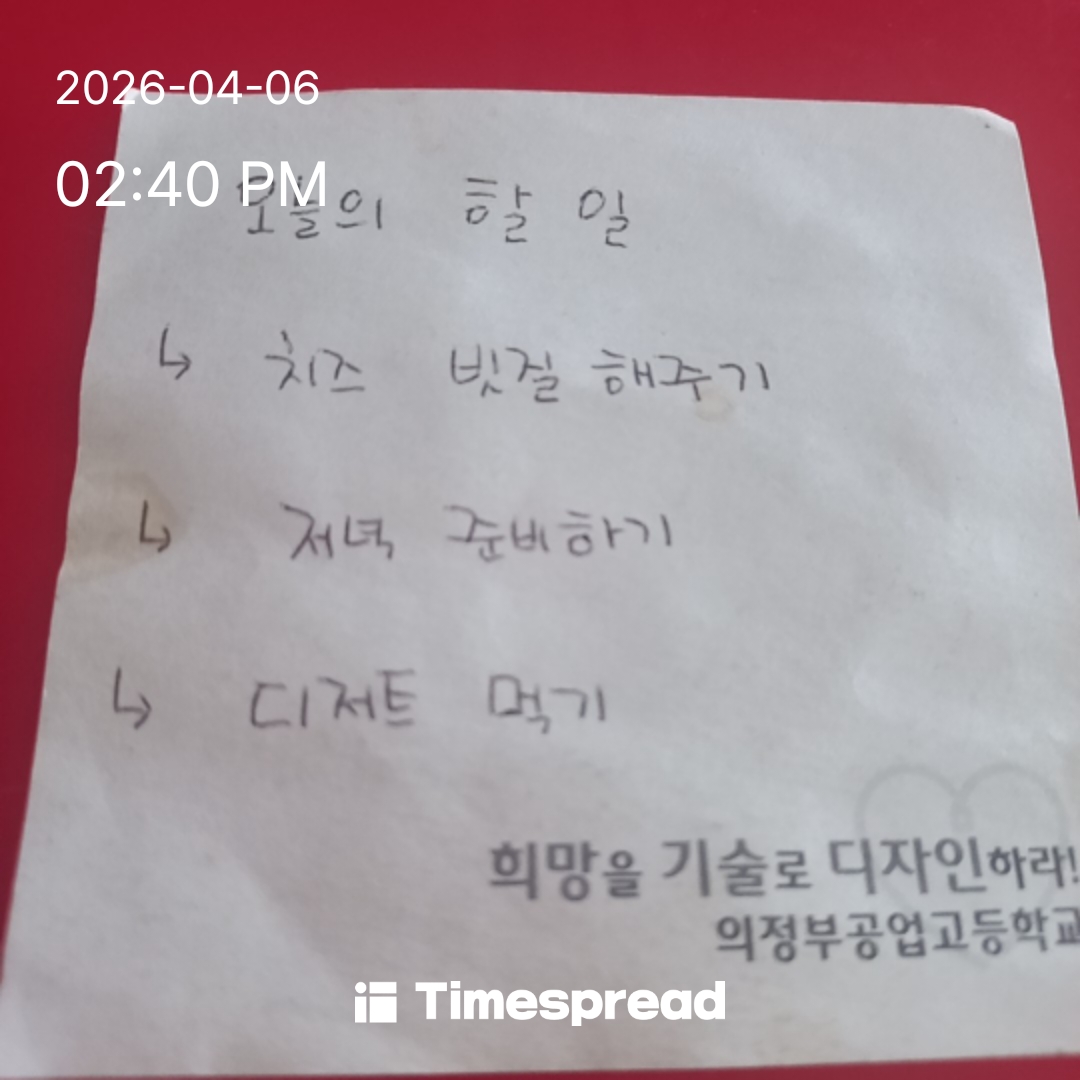 2026-04-06
02:40 PM
오늘의 할 일
↳ 치즈 빗질 해주기
↳ 저녁 준비하기
↳ 디저트 먹기
희망을 기술로 디자인하라!
의정부공업고등학교
Timespread